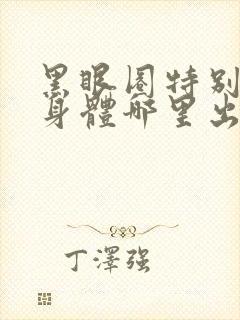 黑眼圈特别
身體哪里出
丁澤強